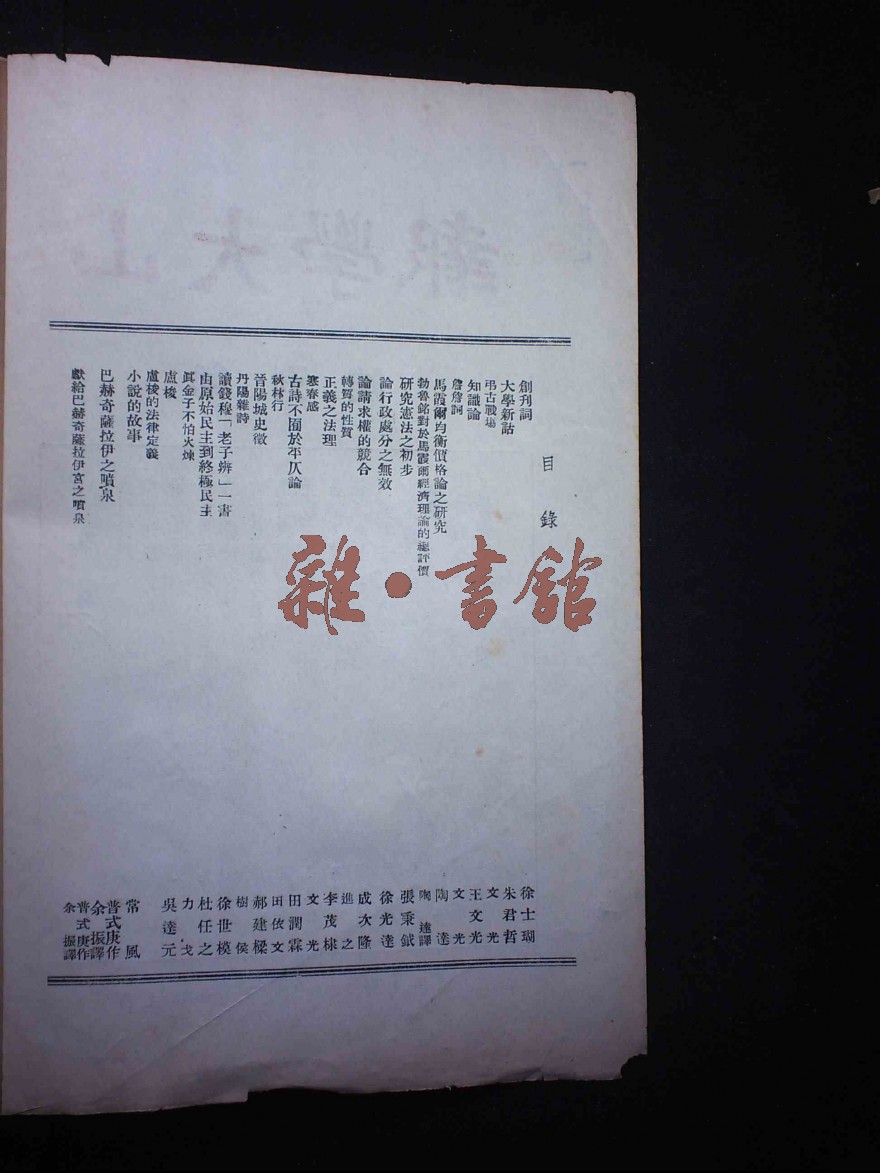 山大學報
目錄
創刊詞 徐士瑚
大學新話 朱君哲
弔古戰場 文光
知識論 王文光
詹詹詞 文光
馬霞爾均衡價格論之研究 陶達
勃魯銘對於馬霞爾經濟理論的總評價 陶遠譯
研究憲法之初步 張秉鉞
論行政處分之無效 徐光達
論請求權的競合 成次隆
轉質的性質 進之
正義之法理 李茂棣
寒春感 文光
古詩不囿於平仄論 田潤霖
秋林行 田依文
晉陽城史徵 郝建樑
丹陽雜詩 樹侯
讀錢穆「老子辨」一書 徐世模
由原始民主到終極民主 杜任之
真金子不怕火煉 力戈
盧梭 吳達元
盧梭的法律定義
小說的故事 常風
巴赫奇薩拉伊之噴泉 普式庚作 余振譯
獻給巴赫奇薩拉伊宮之噴泉 普式庚作 余振譯
雜·書館